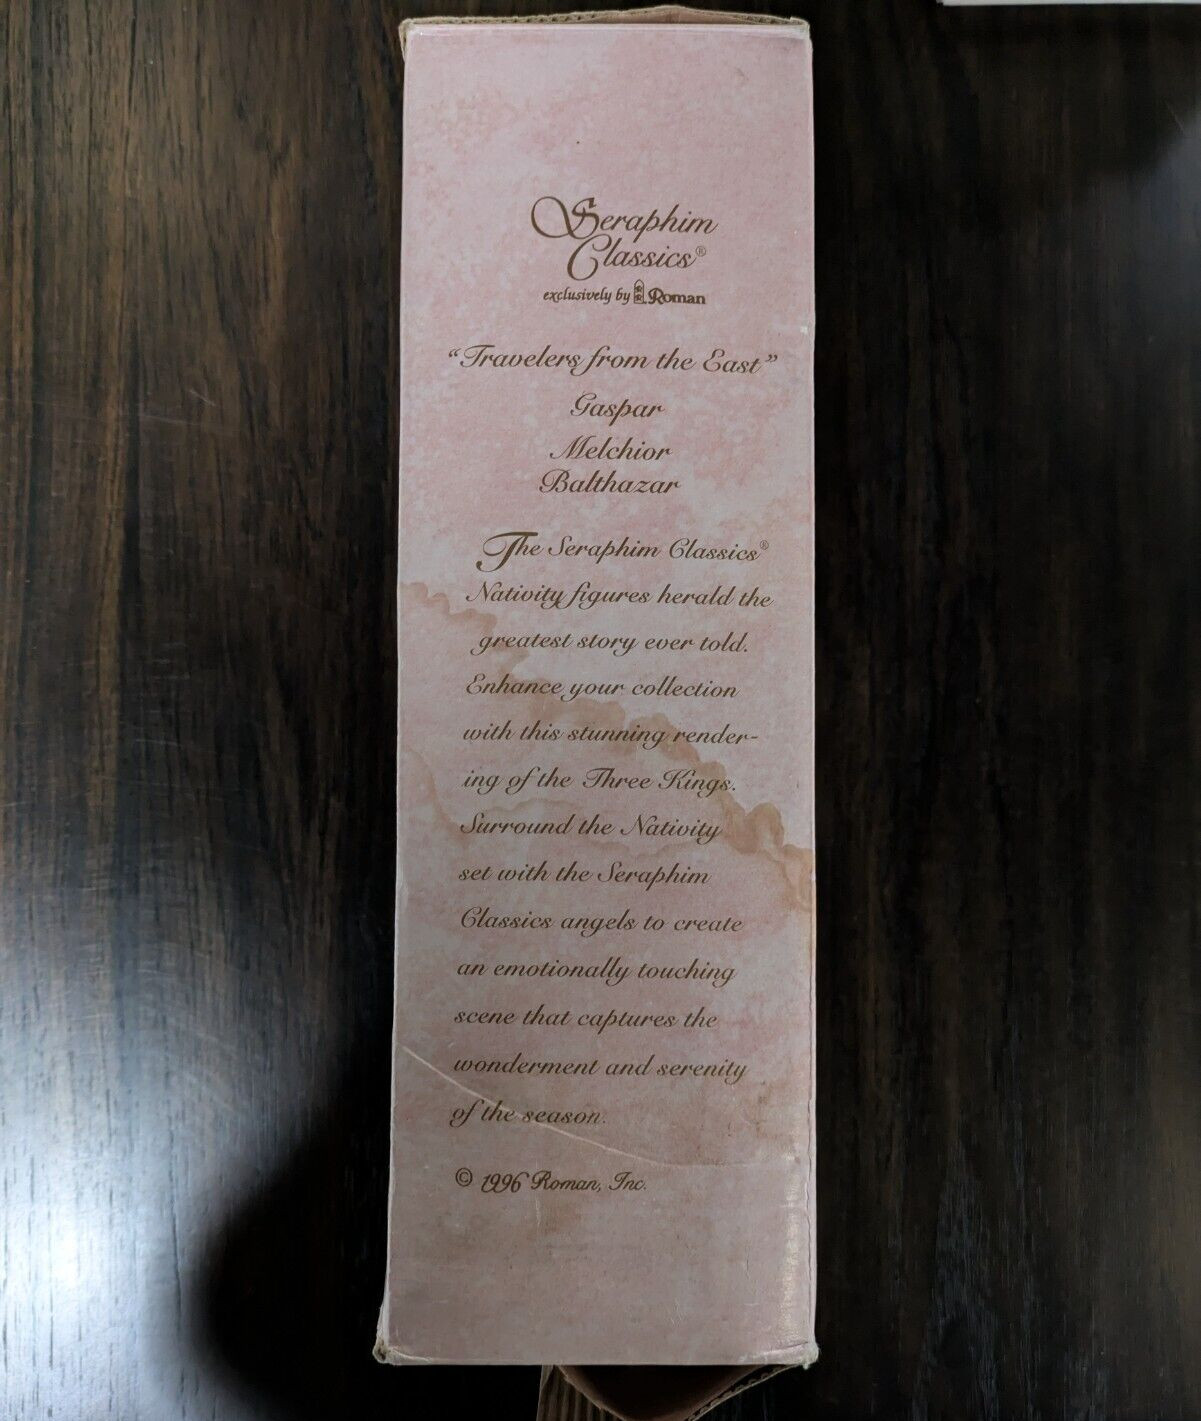 Seraphim
Classics®
exclusively by Roman
“Travelers from the East”
Gaspar
Melchior
Balthazar
The Seraphim Classics®
Nativity figures herald the
greatest story ever told.
Enhance your collection
with this stunning render-
ing of the Three Kings.
Surround the Nativity
set with the Seraphim
Classics angels to create
an emotionally touching
scene that captures the
wonderment and serenity
of the season.
© 1996 Roman, Inc.